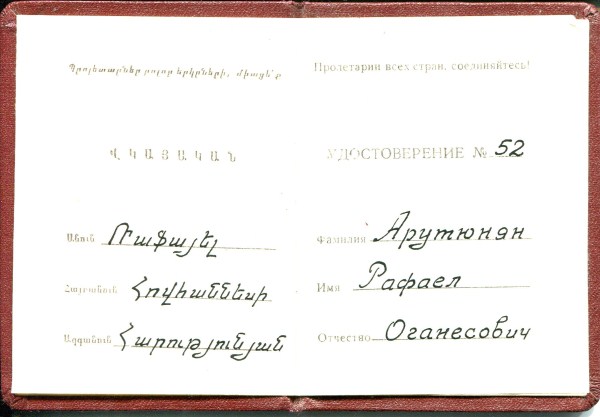 Պրոլետարներ բոլոր երկրների, միացե՛ք
ՎԿԱՅԱԿԱՆ
Անուն Ռաֆայել
Հայրանուն Հովհաննեսի
Ազգանուն Հարությունյան
Пролетарии всех стран, соединяйтесь!
УДОСТОВЕРЕНИЕ № 52
Фамилия Арутюнян
Имя Рафаел
Отчество Оганесович